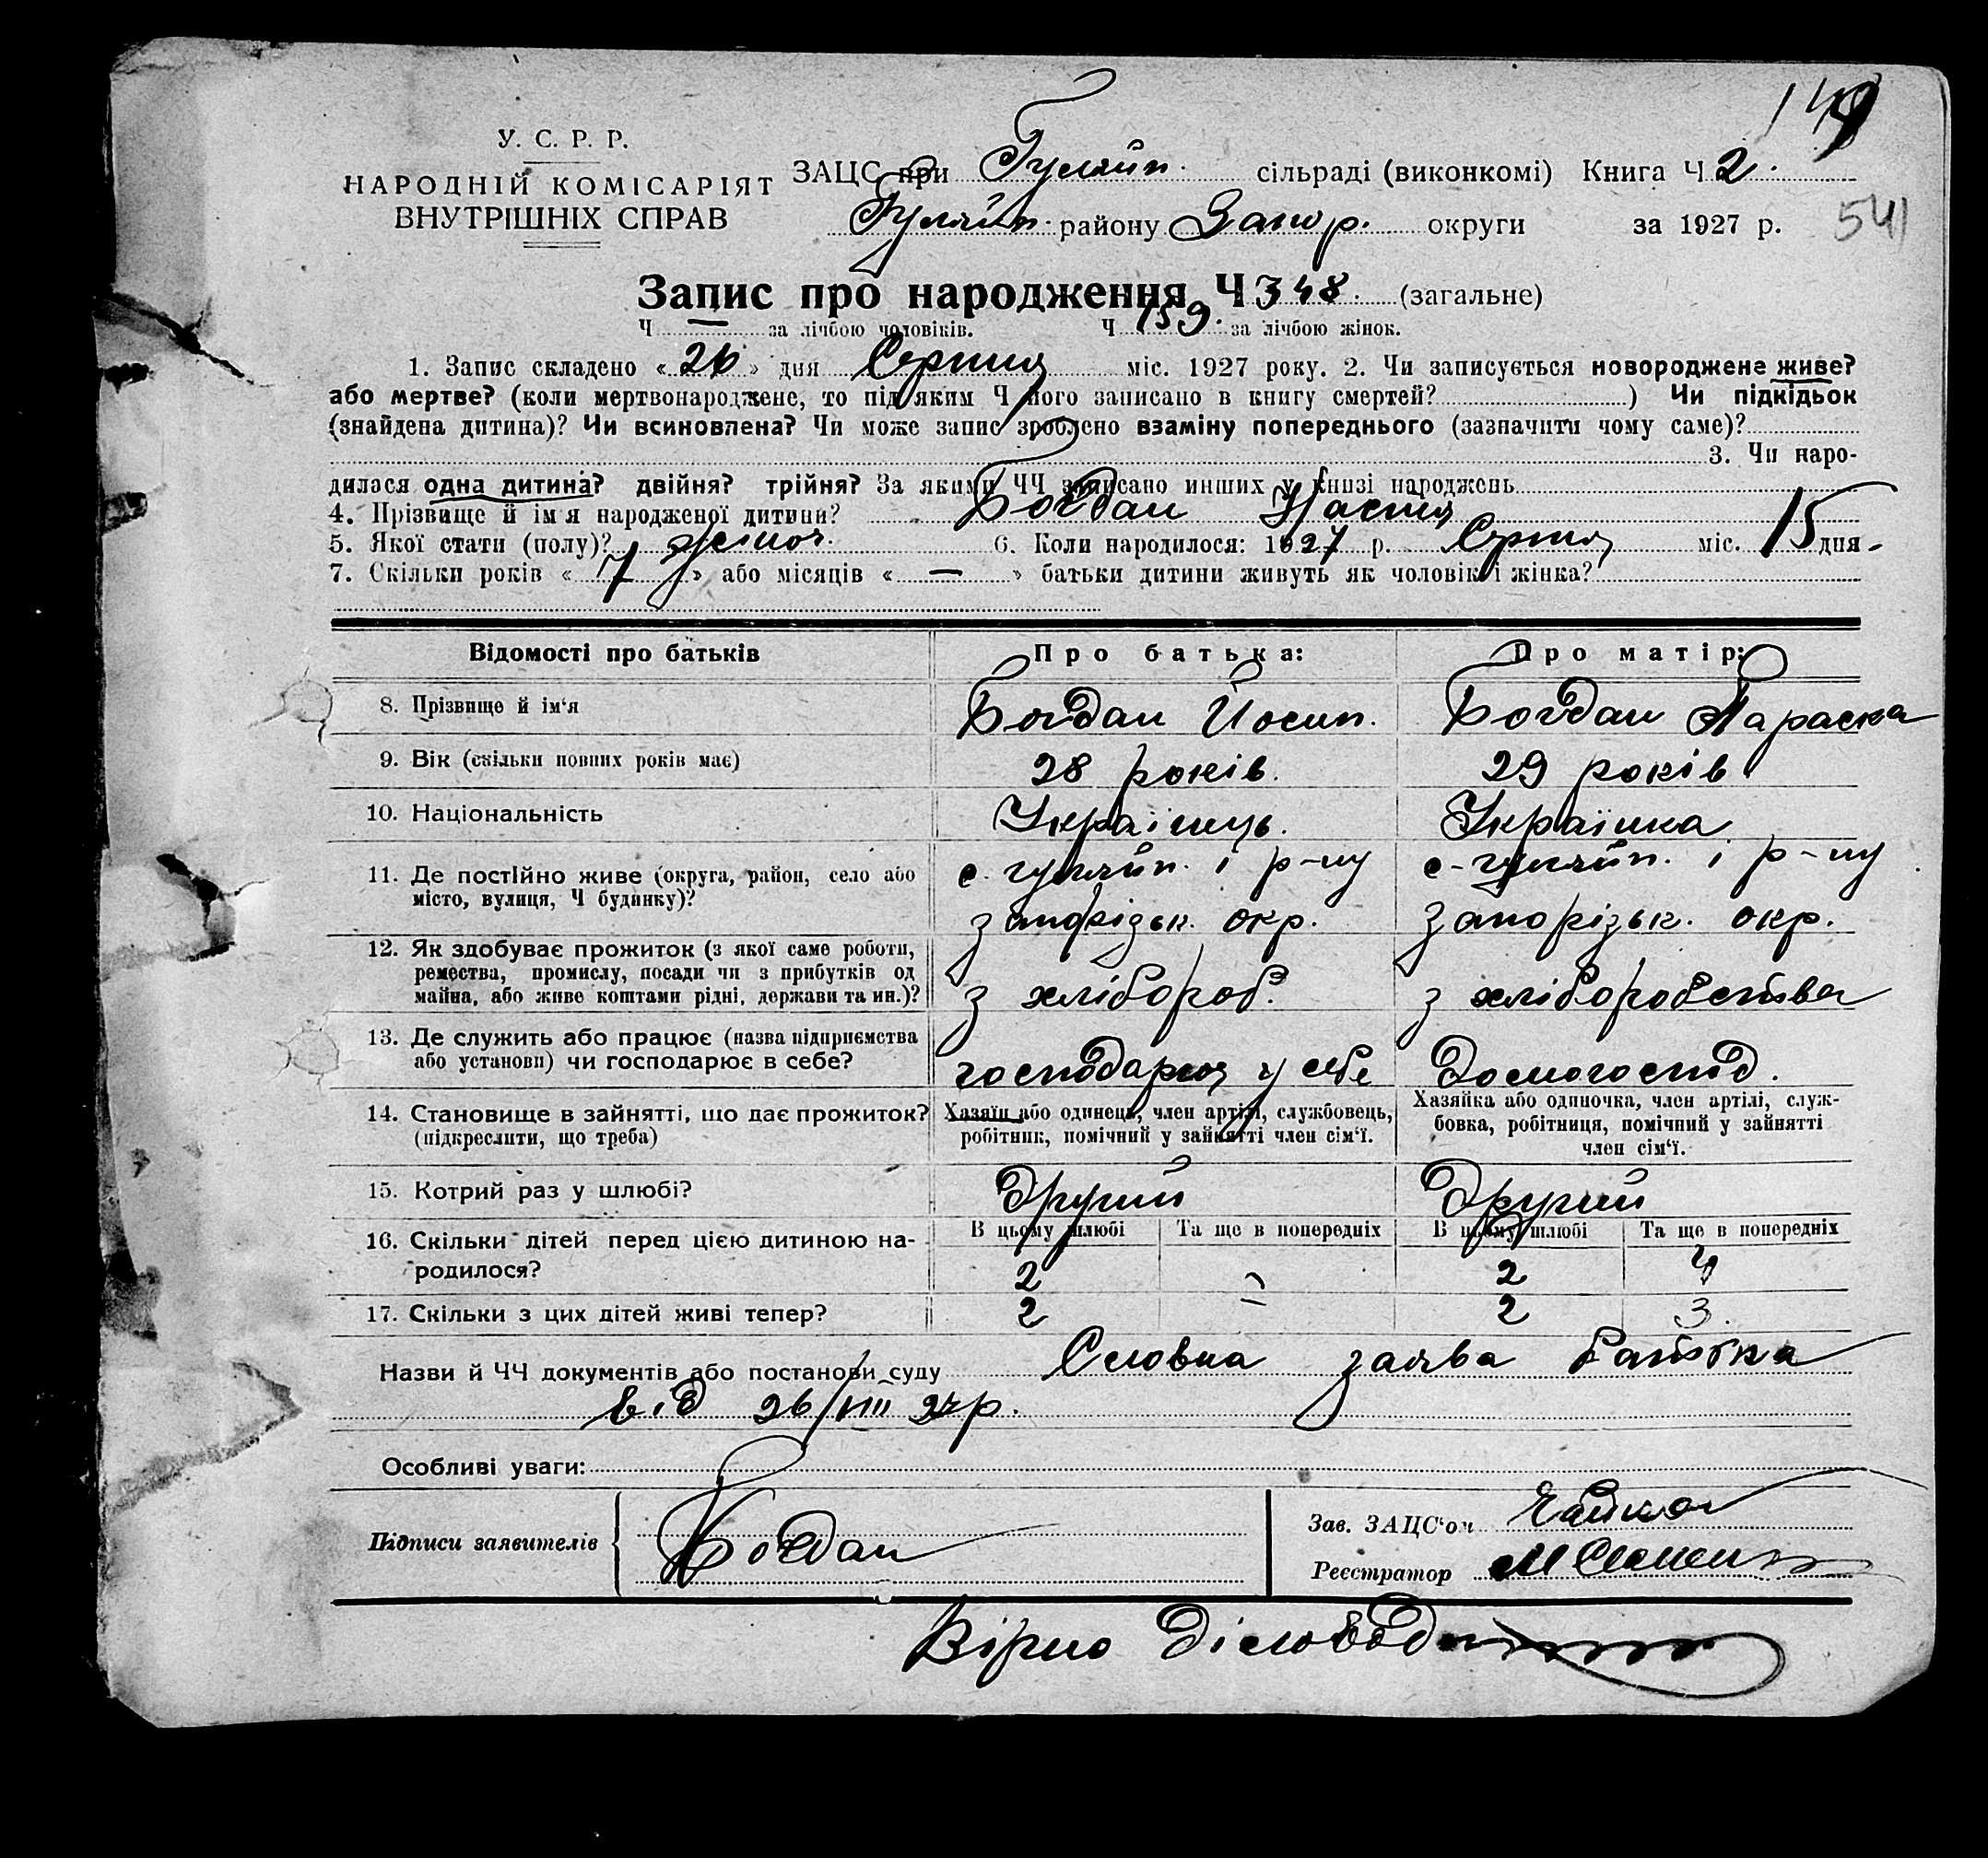 149
У. С. Р. Р.
НАРОДНІЙ КОМІСАРІЯТ
ВНУТРІШНІХ СПРАВ
ЗАЦС при Гуляйп. сільраді (виконкомі) Книга Ч 2.
Гуляйп. району Запор. округи за 1927 р.
541
Запис про народження Ч 348. (загальне)
Ч — за лічбою чоловіків. Ч 159. за лічбою жінок.
1. Запис складено «26» дня Серпня міс. 1927 року. 2. Чи записується новороджене живе?
або мертве? (коли мертвонароджене, то під яким Ч його записано в книгу смертей? ) Чи підкідьок
(знайдена дитина)? Чи всиновлена? Чи може запис зроблено взаміну попереднього (зазначити чому саме)?
3. Чи наро-
дилася одна дитина? двійня? трійня? За якими ЧЧ записано инших у книзі народжень
4. Прізвище й ім'я народженої дитини? Богдан Настя
5. Якої стати (полу)? жіноч. 6. Коли народилося: 1927 р. Серпня міс. 15 дня.
7. Скільки років «7» або місяців «—» батьки дитини живуть як чоловік і жінка?
Відомості про батьків Про батька: Про матір:
8. Прізвище й ім'я Богдан Йосип. Богдан Параска
9. Вік (скільки повних років має) 28 років. 29 років
10. Національність Українець. Українка
11. Де постійно живе (округа, район, село або місто, вулиця, Ч будинку)? с. гуляйп. і р-ну с-гуляйп. і р-ну
запорізьк. окр. запорізьк. окр.
12. Як здобуває прожиток (з якої саме роботи,
ремества, промислу, посади чи з прибутків од
майна, або живе коштами рідні, держави та ин.)? з хлібороб. з хліборобства
13. Де служить або працює (назва підприємства
або установи) чи господарює в себе? господарює у себе домогоспод.
14. Становище в зайнятті, що дає прожиток?
(підкреслити, що треба)
Хазяїн або одинець, член артілі, службовець,
робітник, помічний у зайнятті член сім'ї.
Хазяйка або одиночка, член артілі, служ-
бовка, робітниця, помічний у зайнятті
член сім'ї.
15. Котрий раз у шлюбі? Другий Другий
В цьому шлюбі Та ще в попередніх В цьому шлюбі Та ще в попередніх
16. Скільки дітей перед цією дитиною на-
родилося? 2 – 2 4
17. Скільки з цих дітей живі тепер? 2 – 2 3.
Назви й ЧЧ документів або постанови суду Словна заява батька
від 26/VIII 27р.
Особливі уваги:
Підписи заявителів Богдан
Зав. ЗАЦС'ом
Реєстратор
Вірно Діловод